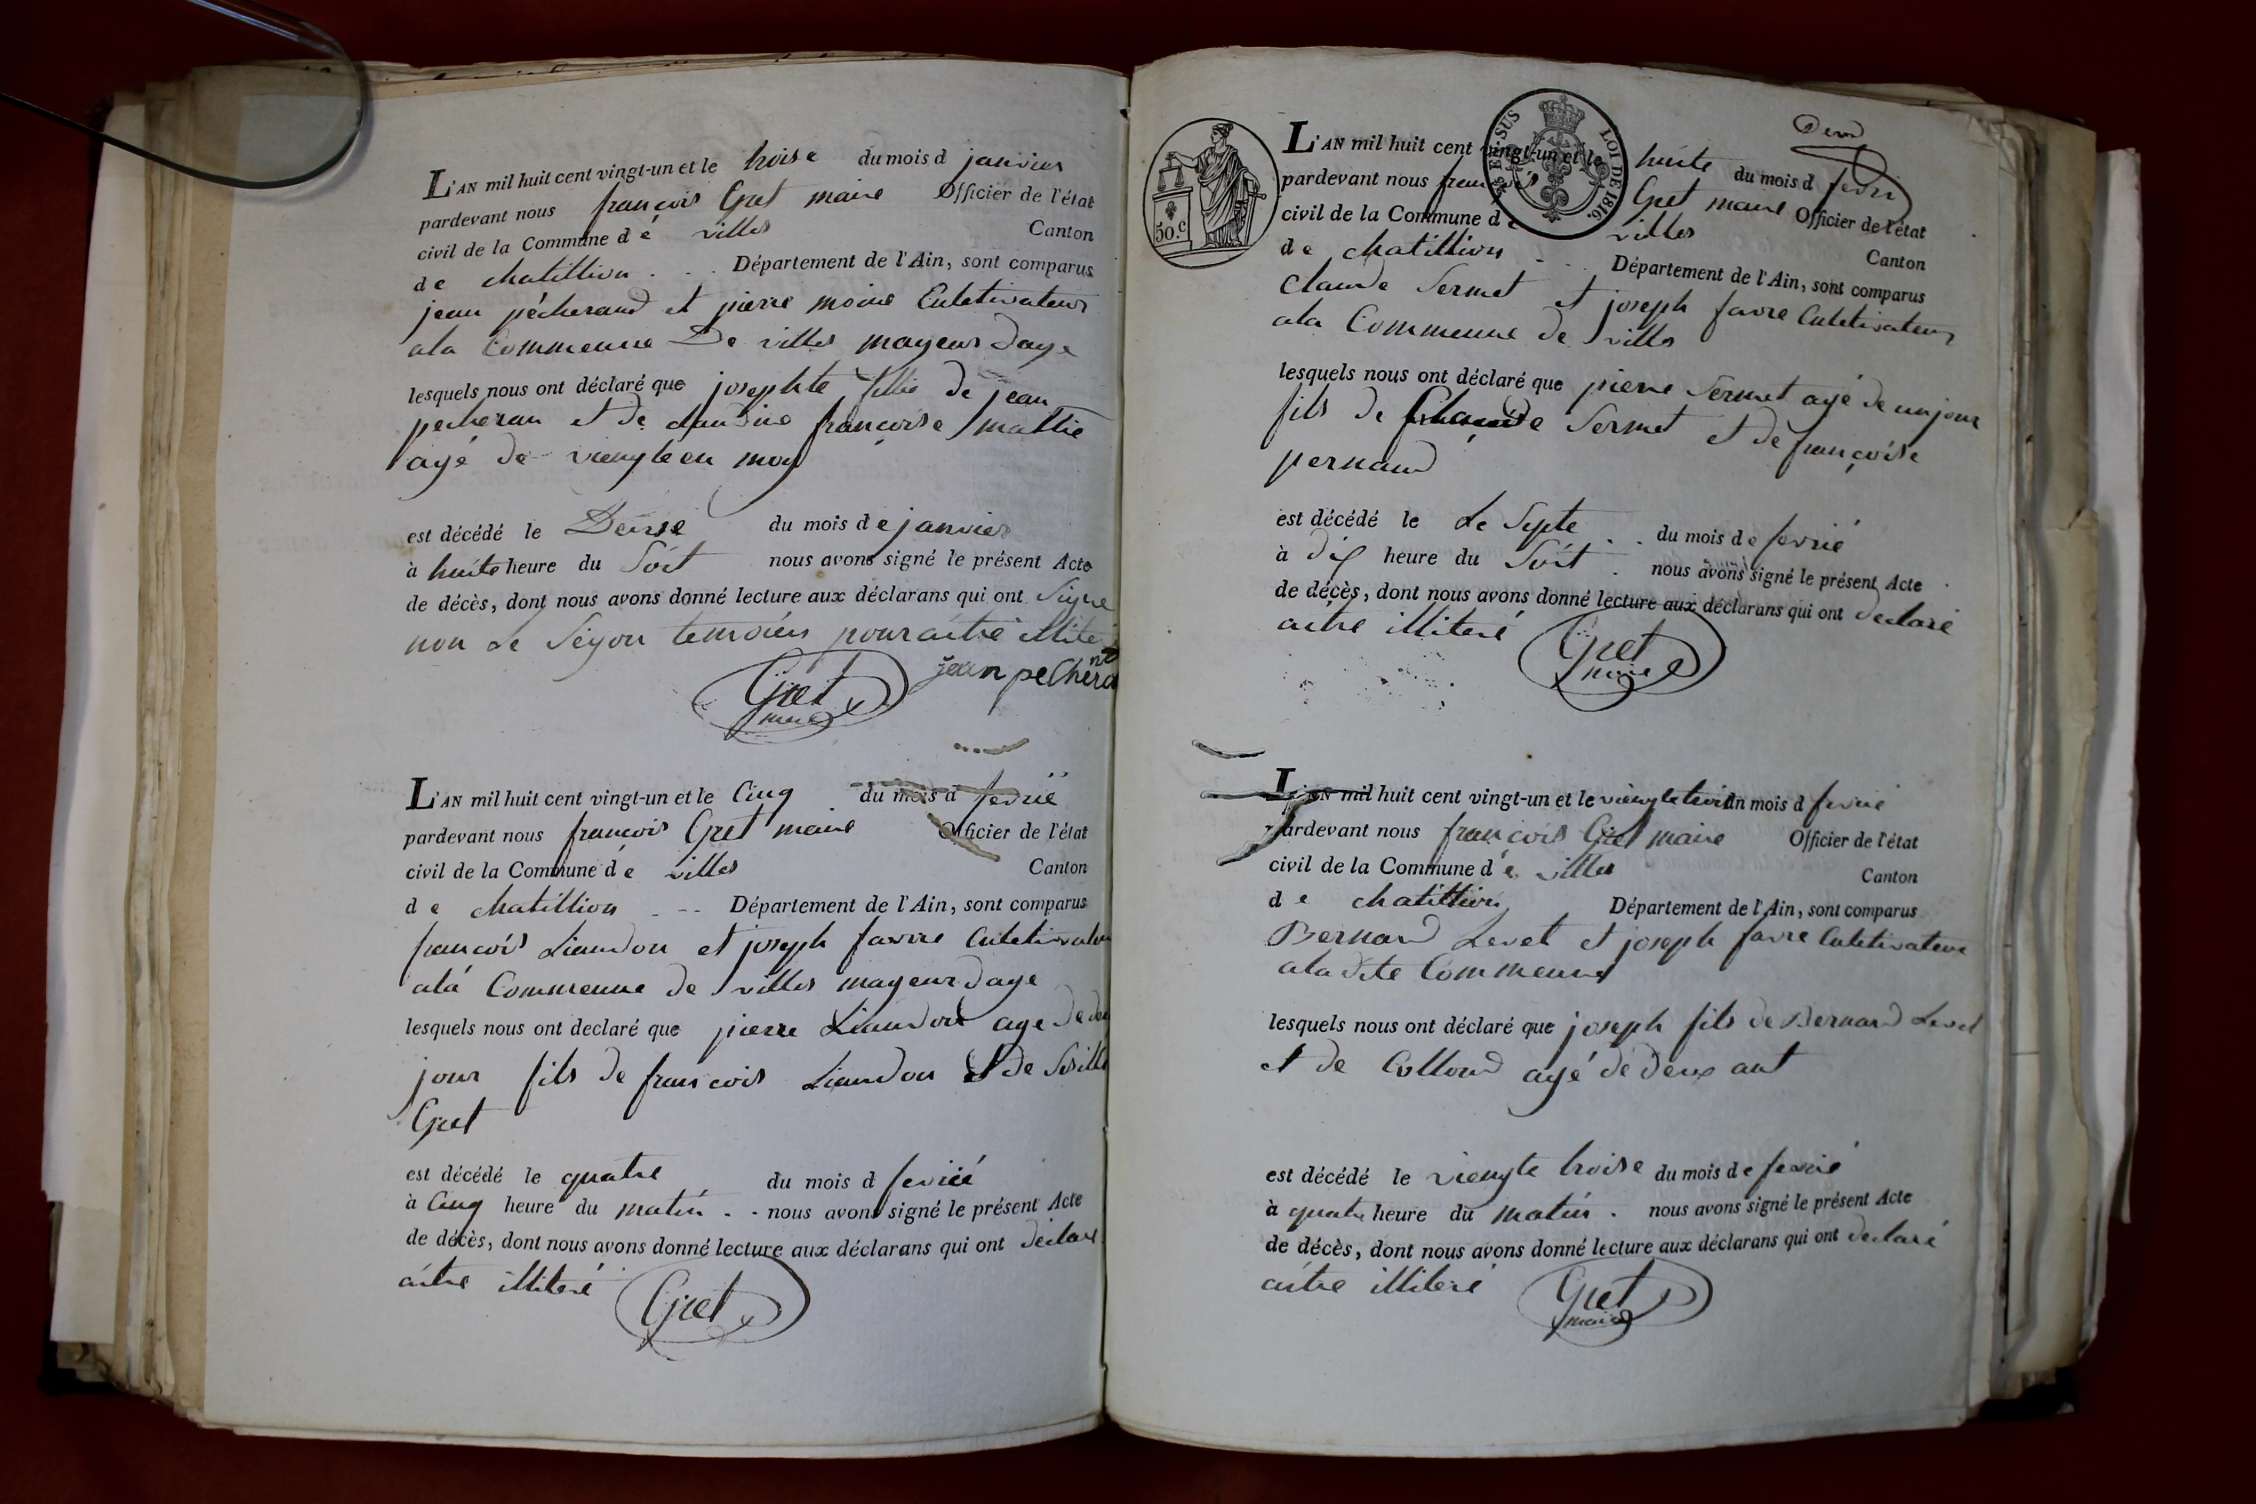 L'AN mil huit cent vingt-un et le troise du mois d janvier
pardevant nous françois Gret maire Officier de l'état
civil de la Commune d é villes Canton
de chatillion Département de l'Ain, sont comparus
jean pécherand et pierre moine Cultetivateur
ala Commeune De villes mayeur dage
lesquels nous ont déclaré que josephte fillie de jean
pecheran et de claudine françoise mattie
ayé de viengteen moy
est décédé le Deuse du mois de janvier
à huite heure du Soit nous avons signé le présent Acte
de décès, dont nous avons donné lecture aux déclarans qui ont Signe
non le Segon temoien pour aitre illite
Gret
maire
jean pecherand
L'AN mil huit cent vingt-un et le Cinq du mois d fevrié
pardevant nous françois Gret maire Officier de l'état
civil de la Commune d é villes Canton
de chatillion Département de l'Ain, sont comparus
françois Liaudon et joseph favre Cultetivateur
alá Commeune de villes mayeur dage
lesquels nous ont declaré que pierre Liaudon age de deu
jour fils de francois Liaudon et de Sesille
Gret
est décédé le quatre du mois d fevrié
à Cinq heure du matin nous avons signé le présent Acte
de décès, dont nous avons donné lecture aux déclarans qui ont déclare
aitre illiteré
Gret
50.c
LOI DE 1816.
L'AN mil huit cent vingt-un et le huite du mois d fevri
pardevant nous francois Gret maire Officier de l'état
civil de la Commune de villes Canton
de chatillion Département de l'Ain, sont comparus
Claude Sermet et joseph favre Cultetivateur
ala Commeune de villes
lesquels nous ont déclaré que pierre Sermet ayé de un jour
fils de Claude Sermet et de françoise
pernaud
est décédé le Le Septe du mois de fevrié
à dix heure du Soit nous avons signé le présent Acte
de décès, dont nous avons donné lecture aux déclarans qui ont declaré
aitre illiteré
Gret
maire
L'AN mil huit cent vingt-un et le viengtetrois du mois d fevrié
pardevant nous françois Gret maire Officier de l'état
civil de la Commune d'é villes Canton
de chatillion Département de l'Ain, sont comparus
Bernard Levet et joseph favre Cultetivateur
ala dite Commeune
lesquels nous ont déclaré que joseph fils de Bernard Levet
et de Colloud ayé de deux ant
est décédé le viengte troise du mois de fevrié
à quatre heure du matin nous avons signé le présent Acte
de décès, dont nous avons donné lecture aux déclarans qui ont declaré
aitre illiteré
Gret
maire